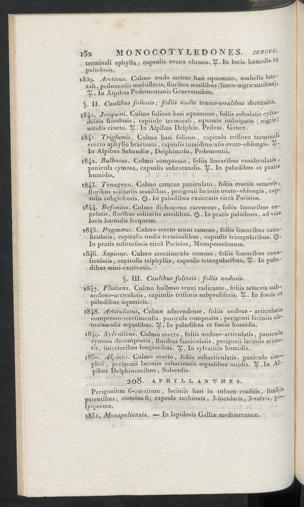 152 MONOCOTYLEDONES. JUNCUS.
terminali aphylla, capsulis ovatis obtusis. ♃. In locis humidis et
paludosis.
1839. Arcticus. Culmo nudo stricto basi squamato, umbella late-
rali, pedunculis unifloris, floribus sessilibus (fusco-nigricantibus).
♃. In Alpibus Pedemontanis Genevensibus.
§. II. Caulibus foliosis; foliis nodis transversalibus destitutis.
1840. Jacquini. Culmo folioso basi squamoso, foliis subulatis cylin-
dricis fistulosis, capitulo terminali, squamis subæqualis (nigris)
nitidis cincto. ♃. In Alpibus Delphin. Pedem. Genev.
1841. Triglumis. Culmo basi folioso, capitulo trifloro terminali
erecto aphyllo bracteato, capsulis tumidiusculis ovato-oblongis. ♃.
In Alpibus Sabaudiæ, Delphinensib., Pedemontis.
1842. Bulbosus. Culmo compresso, foliis linearibus canaliculatis,
panicula cymosa, capsulis subrotundis. ♃. In paludibus et pratis
humidis.
1843. Tenageya. Culmo ramoso paniculato, foliis erectis setaceis,
floribus solitariis sessilibus, perigonii laciniis ovato-oblongis, cap-
sula subglobosis. ☉. In paludibus exsiccatis circa Parisios.
1844. Bufonius. Culmo dichotomo ramosoque, foliis linearibus an-
gulatis, floribus solitariis sessilibus. ☉. In pratis paludosis, ad vias
locis humidis frequens.
1845. Pygmæus. Culmo erecto tenui ramoso, foliis linearibus cana-
liculatis, capitulo nudis terminalibus, capsulis triangularibus. ☉.
In pratis subhumosis circà Parisios, Monspessulanum.
1846. Supinus. Culmo erectiusculo ramoso, foliis linearibus cana-
liculatis, capitulis triphyllis, capsulis triangularibus. ♃. In palu-
dibus semi-exsiccatis.
§. III. Caulibus foliosis; foliis nodosis.
1847. Fluitans. Culmo bulboso tenui radicante, foliis setaceis sub-
nodoso-articulatis, capitulis trifloris subproliferis. ♃. In fossis et
paludibus aquaticis.
1848. Articulatus. Culmo adscendente, foliis nodoso-articulatis
compresso-teretiusculis, panicula composita, perigonii laciniis ob-
tusiusculis æqualibus. ♃. In paludibus et fossis humidis.
1849. Sylvaticus. Culmo erecto, foliis nodoso-articulatis, panicula
cymosa decomposita, floribus fasciculatis, perigonii laciniis arista-
tis, interioribus longioribus. ♃. In sylvaticis humidis.
1850. Alpinus. Culmo erecto, foliis subarticulatis, panicula sim-
plici, perigonii laciniis subaristatis æqualibus nitidis. ♃. In Al-
pibus Delphinensibus, Sabaudis.
208. APHYLLANTHES.
Perigonium 6-partitum, laciniis basi in tubum coalitis, limbis
patentibus; stamina 6; capsula turbinata, 3-locularis, 3-valvis, po-
lysperma.
1851. Monspeliensis. — In lapidosis Galliæ mediterraneæ.